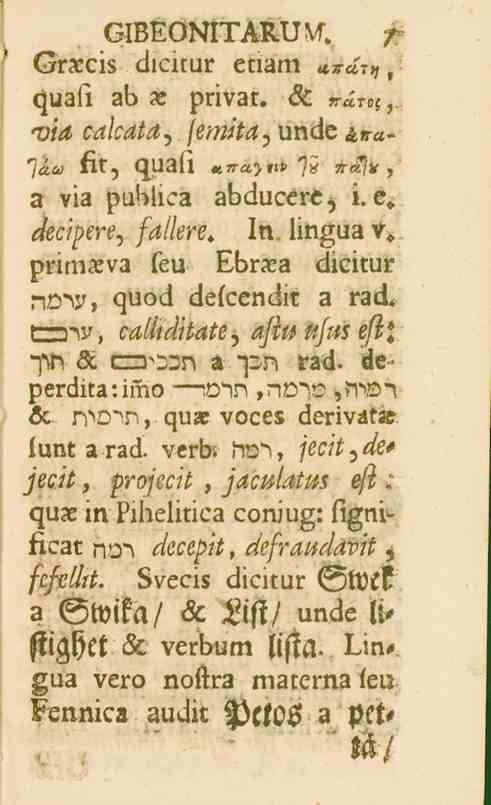 GIBEONITARUM. 7
Græcis dicitur etiam ἀπάτη,
quaſi ab æ privat. & πάτος,
via calcata, ſemita, unde ἀπα-
τάω fit, quaſi ἀπάγειν τοῦ πάτου,
a via publica abducere, i. e.
decipere, fallere. In lingua v.
primæva ſeu Ebræa dicitur
ערמה, quod deſcendit a rad.
ערם, calliditate, aſtu uſus eſt:
תוך & תככים a תכך rad. de-
perdita: im̃o רמיה, מרמה, תרמה,
& תרמית, quæ voces derivatæ
ſunt a rad. verb. רמה, jecit, de-
jecit, projecit, jaculatus eſt:
quæ in Pihelitica conjug: ſigni-
ficat רמה decepit, defraudavit,
fefellit. Svecis dicitur Swek
a Swika/ & Liſt/ unde li-
ſtighet & verbum liſta. Lin-
gua vero noſtra materna ſeu
Fennica audit Petos a pet-
tä/